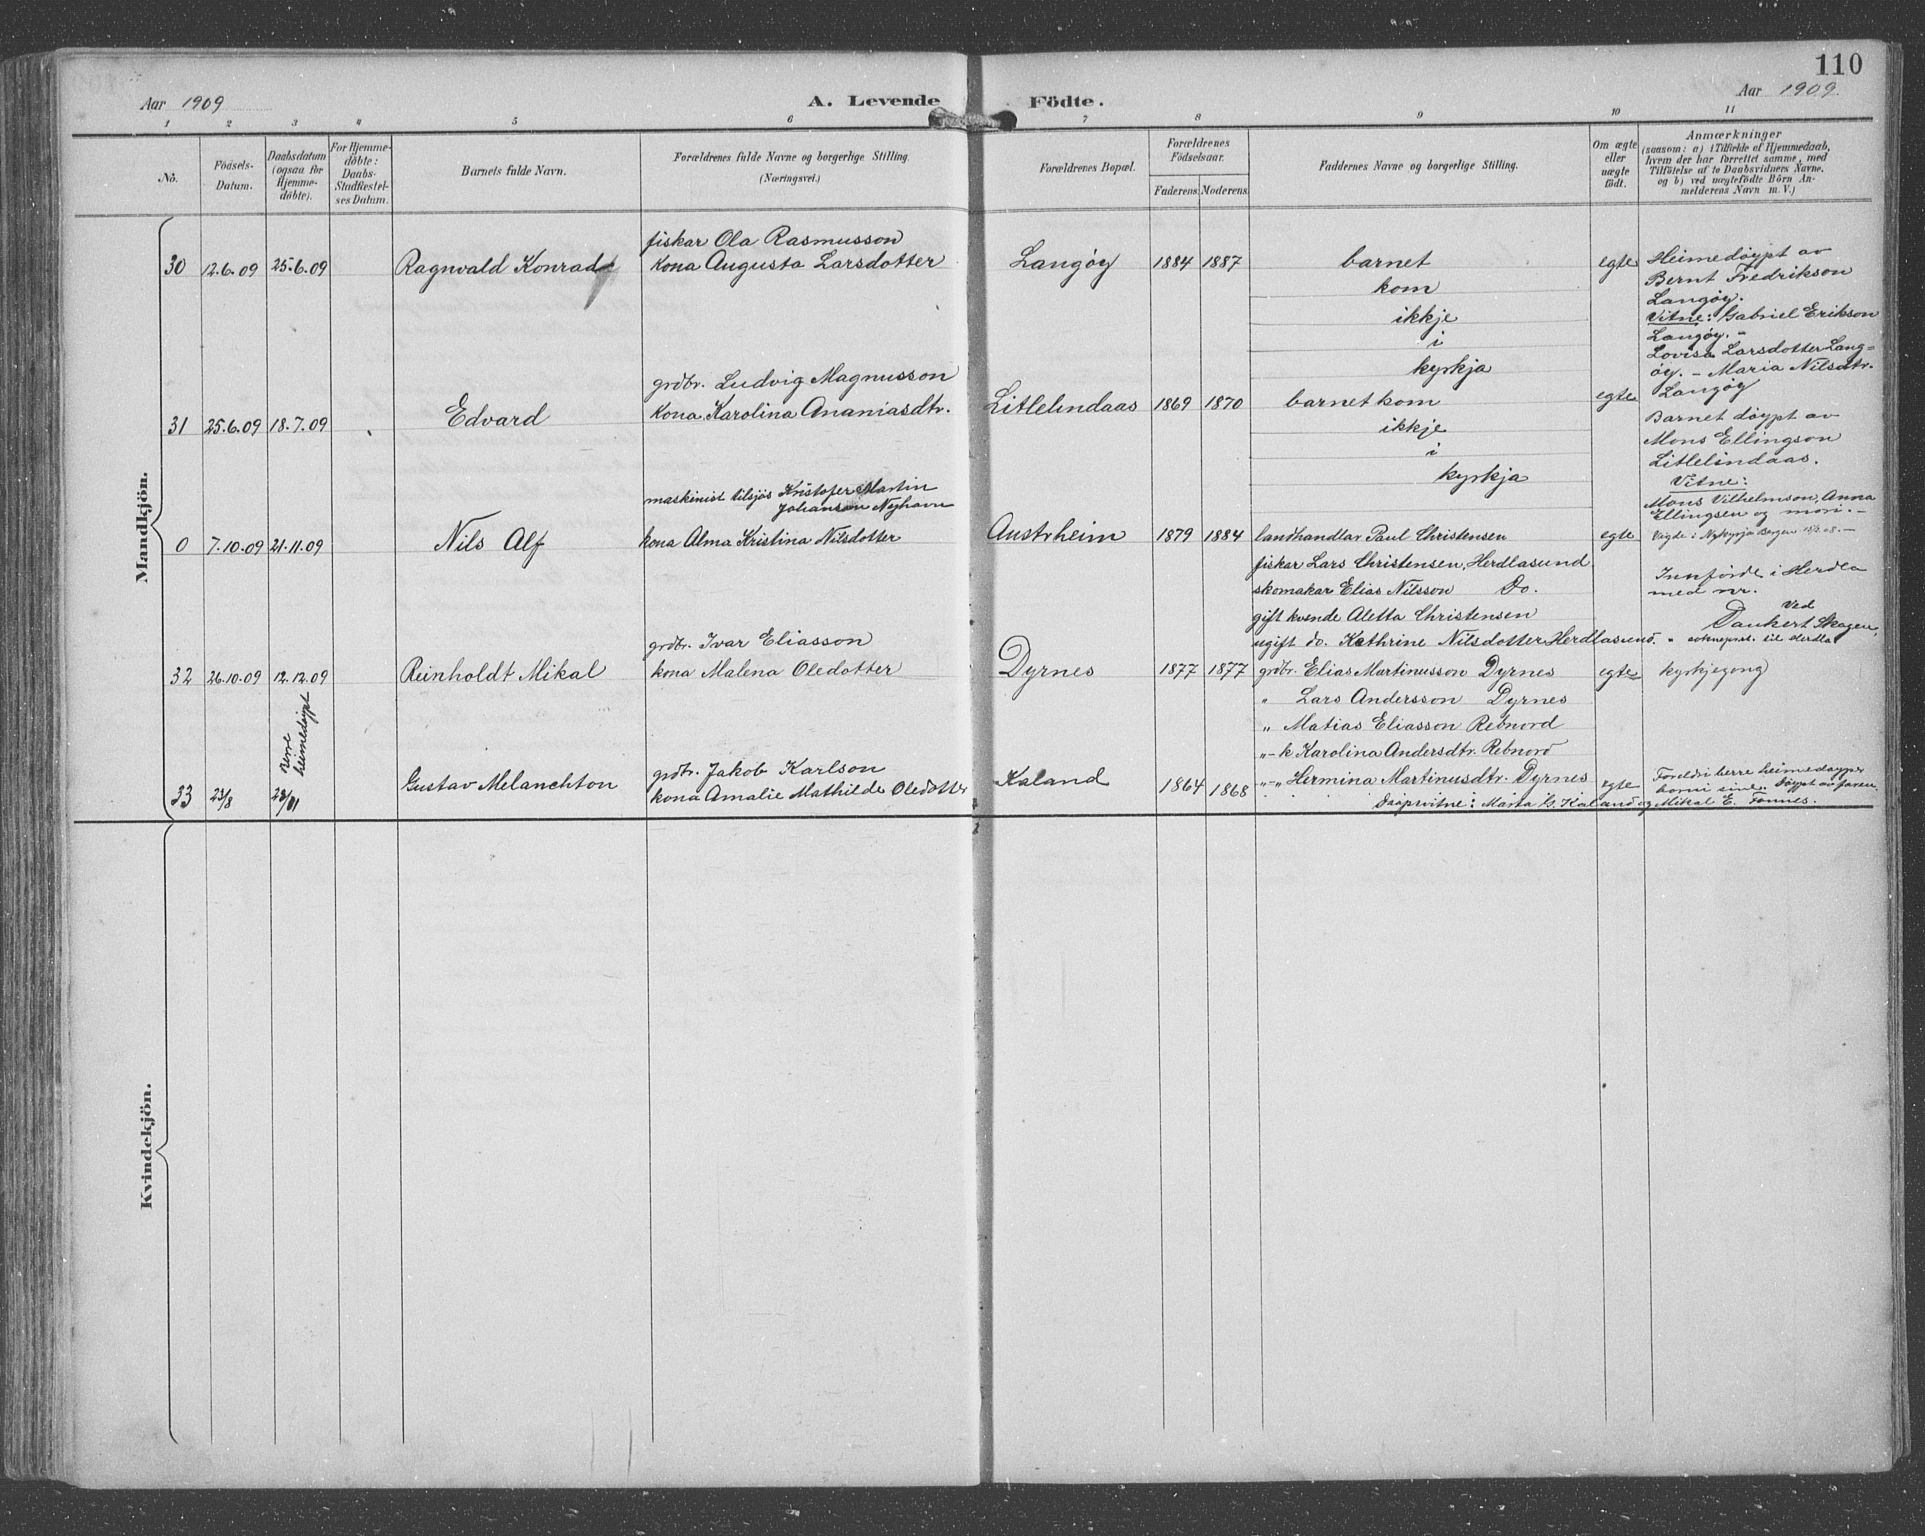 110
Aar 1909
A. Levende Födte.
Aar 1909
1 2 3 4 5 6 7 8 9 10 11
No.
Födsels-Datum.
Daabsdatum (ogsaa for Hjemme-döbte).
For Hjemme-döbte: Daabs-Stadfæstelses Datum.
Barnets fulde Navn.
Forældrenes fulde Navne og borgerlige Stilling.
(Næringsvei.)
Forældrenes Bopæl.
Forældrenes Födselsaar.
Faderens. Moderens.
Faddernes Navne og borgerlige Stilling.
Om ægte eller uægte födt.
Anmærkninger
(saasom: a) i Tilfælde af Hjemmedaab,
hvem der har forrettet samme, med
Tilföielse af to Daabsvidners Navne,
og b) ved uægtefödte Börn An-
melderens Navn m. V.)
Mandkjön.
fiskar Ola Rasmusson
30 12.6.09 25.6.09 Ragnvald Konrad kona Augusta Larsdotter Langøy 1884 1887 barnet egte Heimedøypt av
kom Bernt Fredrikson
Langøy.
ikkje Vitne: Gabriel Erikson
i Langøy. -
Lovisa Larsdotter Lang=
kyrkja øy. - Maria Nilsdtr.
Langøy
grdbr. Ludvig Magnusson
31 25.6.09 18.7.09 Edvard kona Karolina Ananiasdtr. Litlelindaas 1869 1870 barnet kom egte Barnet døypt av
ikkje Mons Ellingson
i Litlelindaas.
kyrkja Vitne:
Mons Vilhelmson, Anna
Ellingsen og mori. -
maskinist tilsjøs Kristofer Martin
Johanson Nyhavn
0 7.10.09 21.11.09 Nils Alf kona Alma Kristina Nilsdotter Austrheim 1879 1884 landhandlar Paul Christensen egte Vigde i Nykyrkja Bergen
fiskar Lars Christensen, Herdlasund
Innførde i Herdla
skomakar Elias Nilsson Do. med nr.
gift kvende Aletta Christensen ved
Dankert Skagen,
ugift do. Kathrine Nilsdotter Herdlasund. sokneprest til Herdla
grdbr. Ivar Eliasson
32 26.10.09 12.12.09 Reinholdt Mikal kona Malena Oledotter Dyrnes 1877 1877 grdbr. Elias Martinusson Dyrnes egte kyrkjegong
" Lars Andersson Dyrnes
" Matias Eliasson Rebnord
"-k Karolina Andersdtr. Rebnord
berre heimedøypt
grdbr. Jakob Karlson
33 23/8 Gustav Melanchton kona Amalie Mathilde Oledotter Kaland 1864 1868 "-" Hermina Martinusdtr. Dyrnes egte Foreldri berre heimedøyper
borni sine. Døypt av faren.
Daapsvitne: Marta G. Kaland og Mikal E. Fonnes.
Kvindekjön.